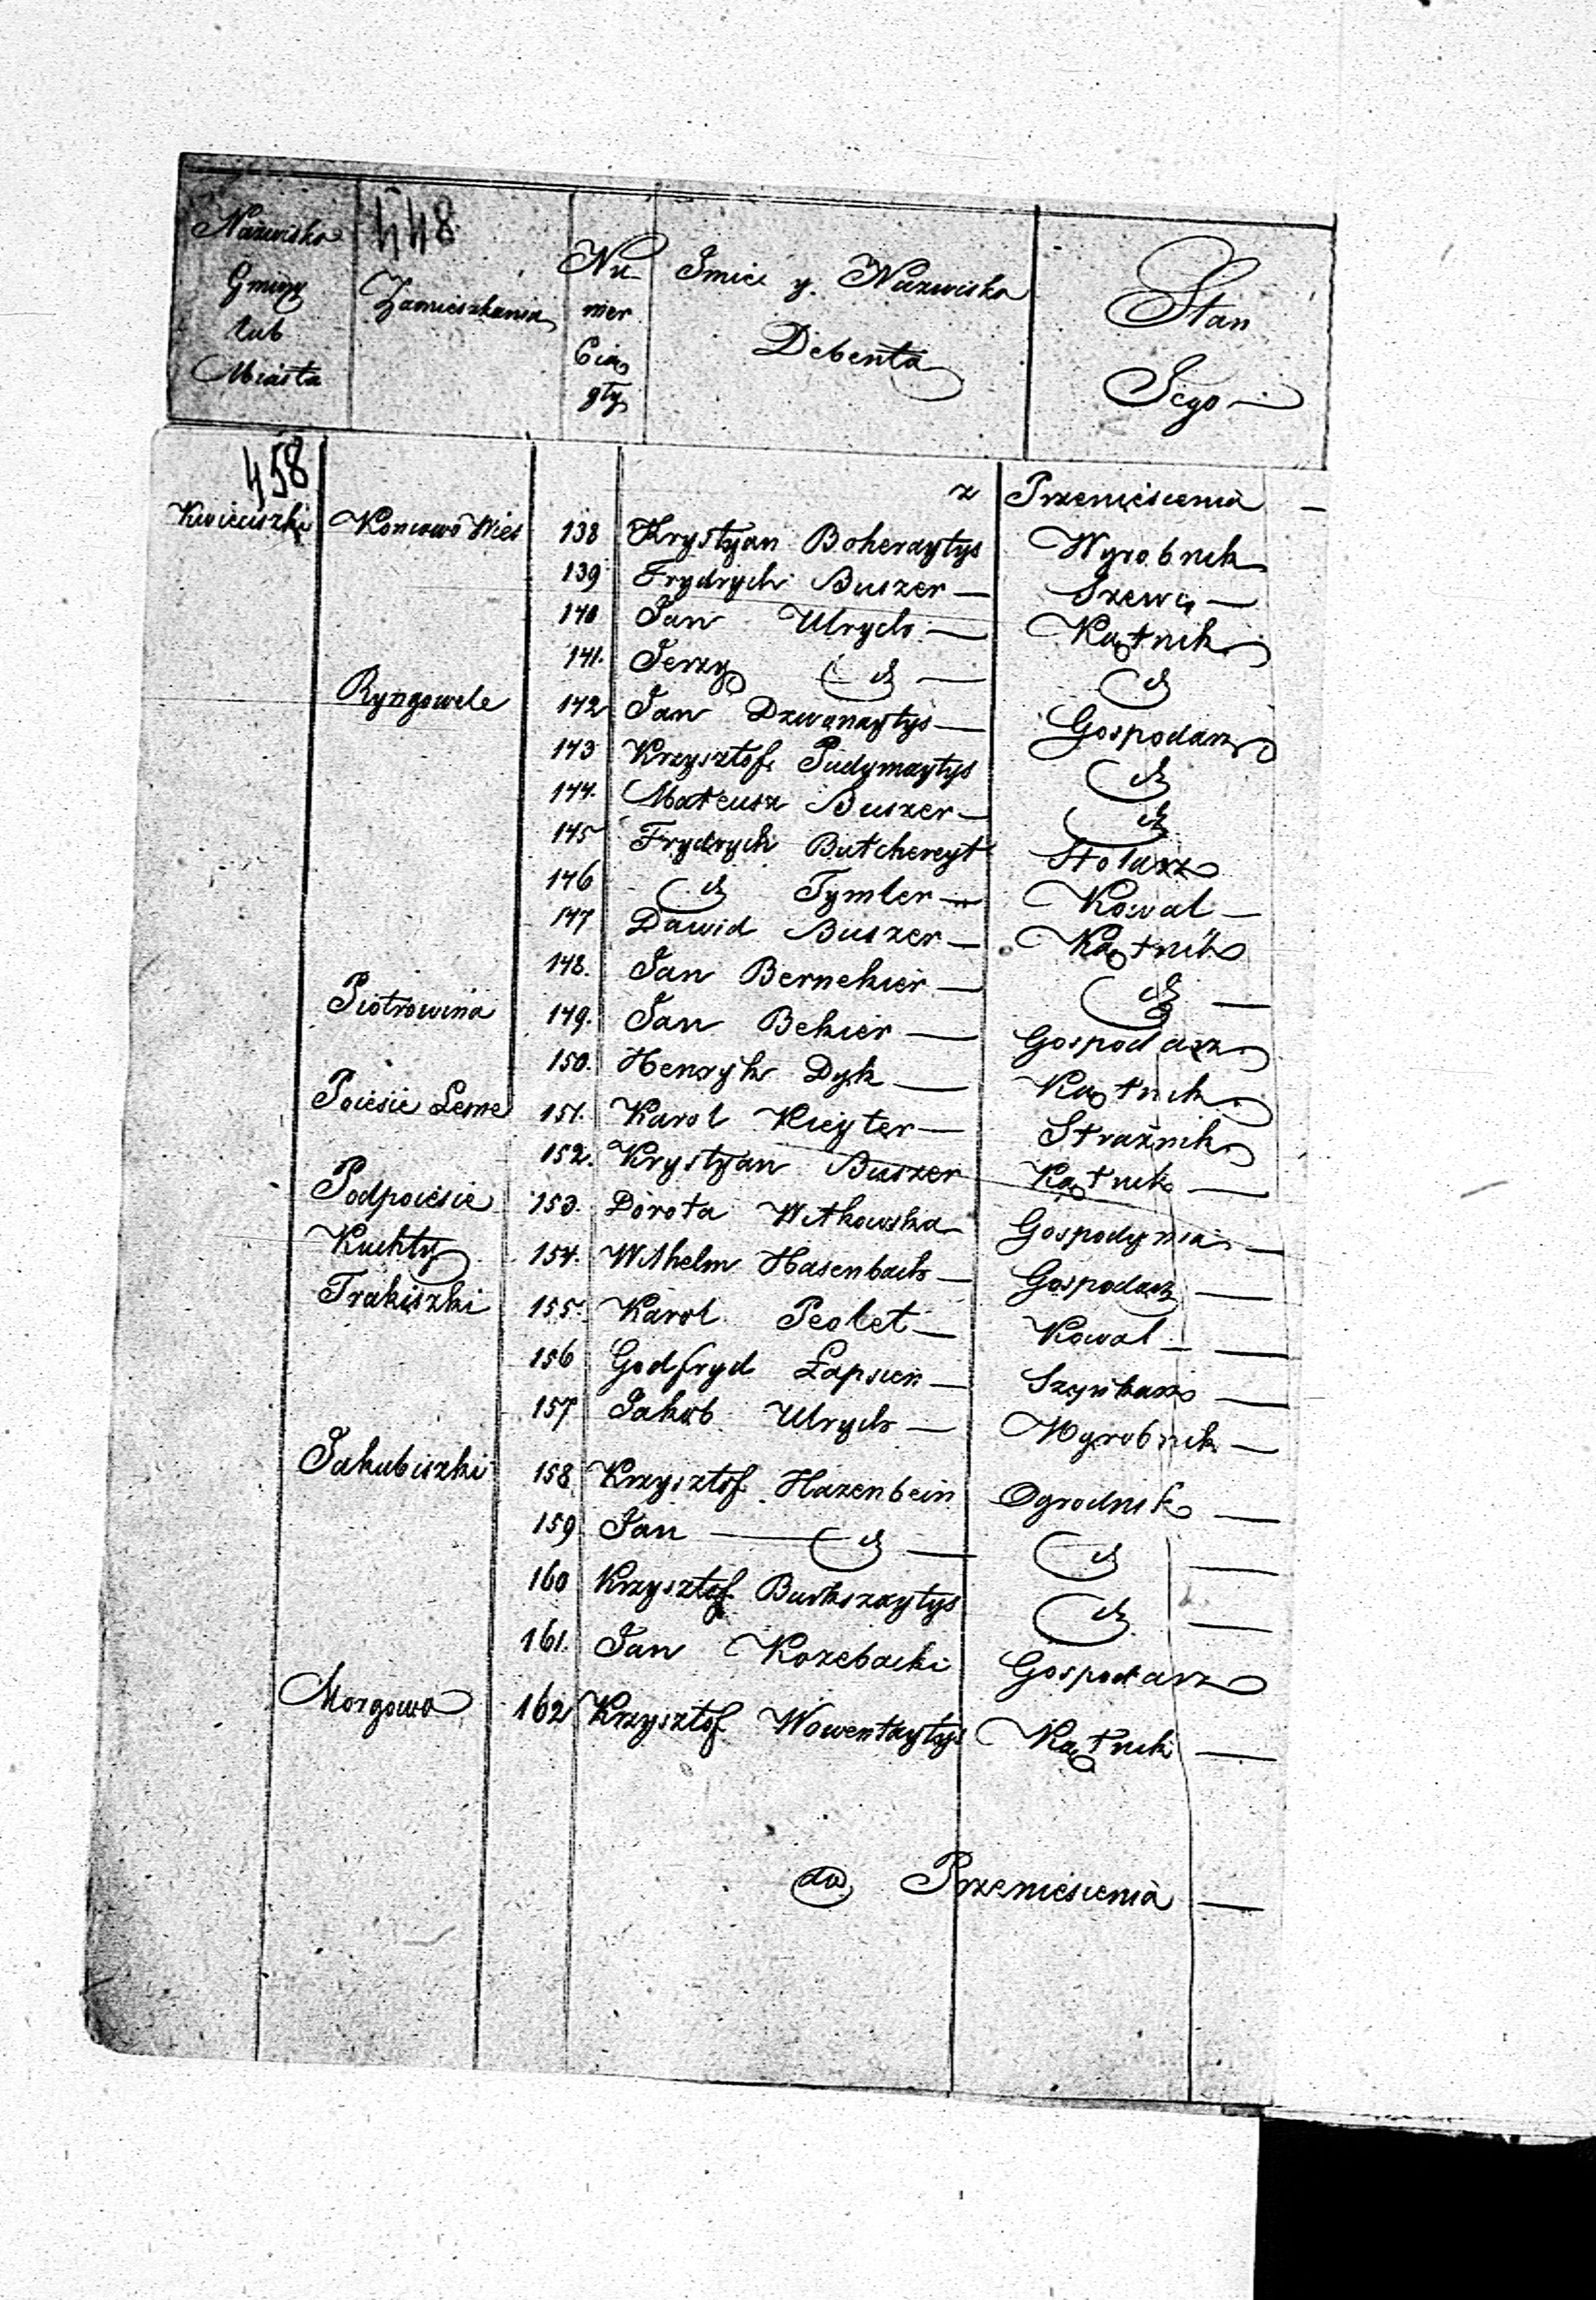 448
Nazwisko Gminy lub Miasta | Zamieszkania | Nu mer Cią gły | Imie y Nazwisko Debenta | Stan Jego
458
z Przeniesienia —
Kwieciszki Koncowo Wies 138 Krystyan Boheraytys Wyrobnik
139 Frydrych Buszer — Szewc —
140 Jan Ulrych — Kątnik
141. Jerzy dt — dt
Ryngowele 142 Jan Dzwonaytys — Gospodarz
143 Krzysztof Pudymaytys dt
144. Mateusz Buszer — dt
145 Frydrych Butchereyt Stolarz
146 dt Tymler — Kowal —
147 Dawid Buszer — Kątnik
148. Jan Bernekier — dt —
Piotrowina 149. Jan Bekier — Gospodarz
150. Henryk Dyk — Kątnik
Poiesie Lesne 151. Karol Kieyter — Strażnik
152. Krystyan Buszer Kątnik —
Podpoiesie 153. Dorota Witkowska Gospodynia —
Kuchty 154. Wilhelm Hasenbach — Gospodarz —
Trakiszki 155. Karol Peolet — Kowal —
156 Godfryd Łapsien — Szynkarz —
157 Jakob Ulrych — Wyrobnik —
Jakubiszki 158 Krzysztof Hazenbein Ogrodnik —
159 Jan — dt — dt —
160 Krzysztof Burkszaytys dt —
161. Jan Kozebacki Gospodarz
Morgowo 162 Krzysztof Wowentaytys Kątnik —
do Przeniesienia —